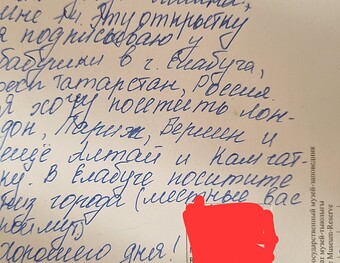 Эту открытку
я подписываю у
бабушки в г. Елабуга,
Респ Татарстан, Россия.
Я хочу посетить Лон-
дон, Париж, Берлин и
ещё Алтай и Камчат-
ку. В Елабуге поситите
низ города (местные вас
поймут)
Хорошего дня!
государственный музей-заповедник
Museum-Reserve